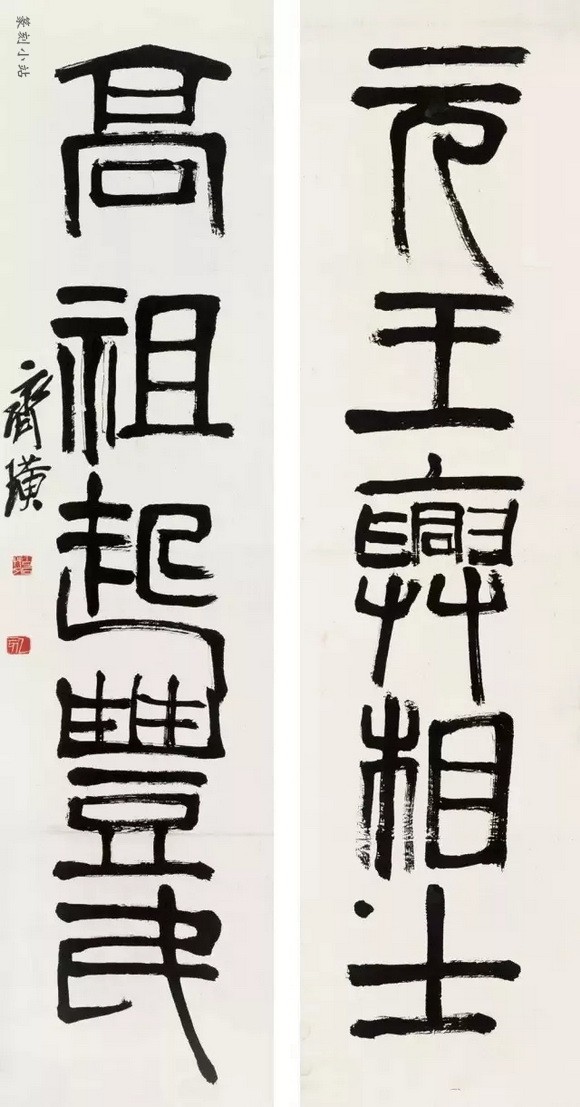 元王興相土
高祖起豐民
齊璜
篆刻小站